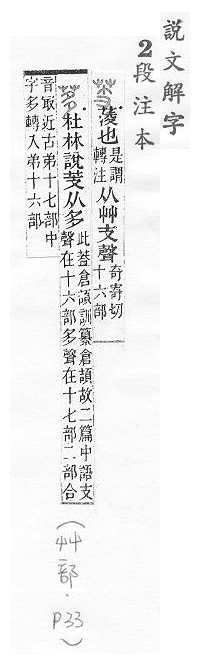 說文解字
2段注本
蔆也是謂轉注从艸支聲奇寄切十六部
杜林說芰从多此葢倉頡訓纂倉頡故二篇中語支
聲在十六部多聲在十七部二部合
音冣近古弟十七部中
字多轉入弟十六部
(艸部.P33)